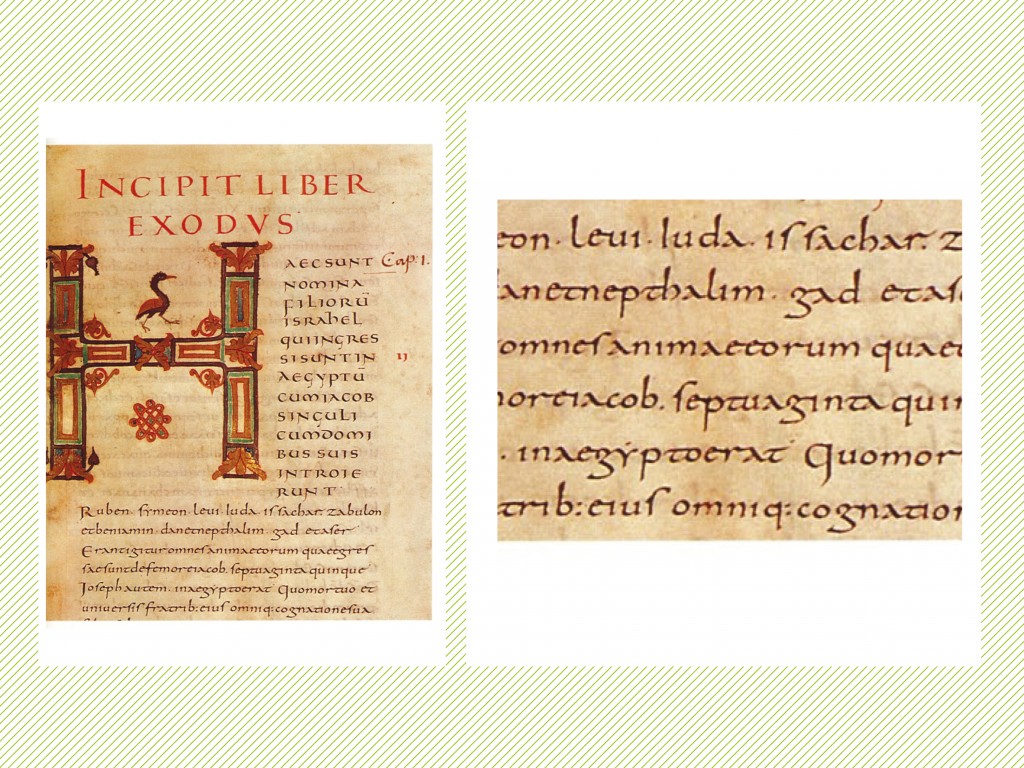 INCIPIT LIBER
EXODVS
AECSUNT Cap. 1.
NOMINA
FILIORŪ
ISRAHEL
QUIINGRES
SISUNTIN II
AEGYPTŪ
CUMIACOB
SINGULI
CUMDOMI
BUS SUIS
INTROIE
RUNT
Ruben· symeon· leui· iuda· issachar· zabulon
etbeniamin· danetnepthalim· gad· etaser
Erantigituromnesanimaeeorum quaeegres
saesuntdefemoreiacob. septuaginta quinque
Ioseph autem· inaegẏptoerat Quomortuo et
uniuersis fratrib: eius omniq: cognationesua
eon· leui· iuda· issachar· z
danetnepthalim· gad etase
omnesanimaeeorum quaee
moreiacob. septuaginta quin
· inaegẏptoerat Quomor
trib: eius omniq: cognation